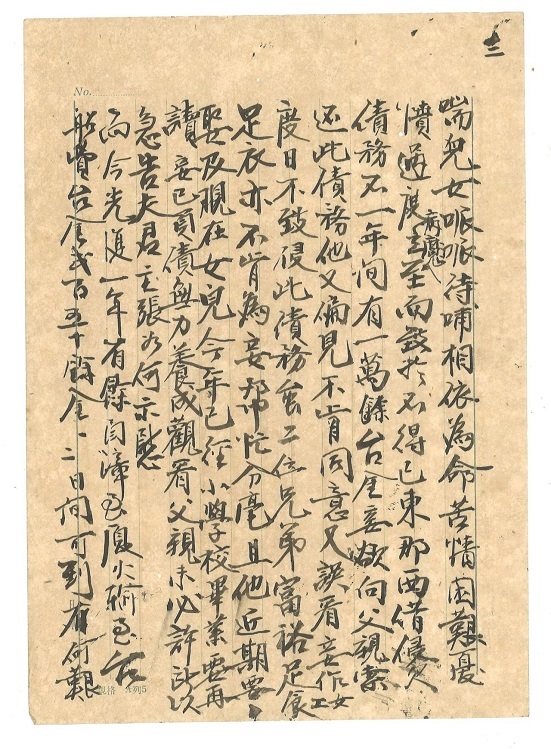 三
No.
喘兒女哌哌待哺相依為命苦情困難憂
憤過度病魔立至而致於不得已東那西借侵欠
債務不一年间有一萬餘台金妾欲向父親索
还此債務他又偏見不肯同意又誤看妾作女工
度日不致侵此債務舍二位兄弟富裕足食
足衣亦不肯為妾帮忙分毫且他近期要
娶及現在女兒今年已經小學校畢業要再
讀妾已司債無力養成觀看父親未必許此以
急告夫君主張如何示慰
而今光復一年省縣自漳至厦火輪至台
船費台金弍百五十餘金一二日间可到有何艱
規格 A列5